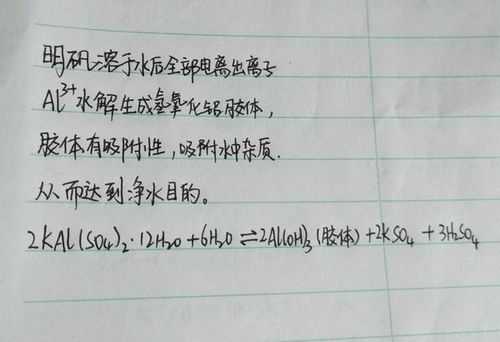 明矾溶于水后全部电离出离子
Al³⁺水解生成氢氧化铝胶体,
胶体有吸附性,吸附水中杂质.
从而达到净水目的。
2KAl(SO₄)₂·12H₂O+6H₂O⇌2Al(OH)₃(胶体)+2KSO₄+3H₂SO₄